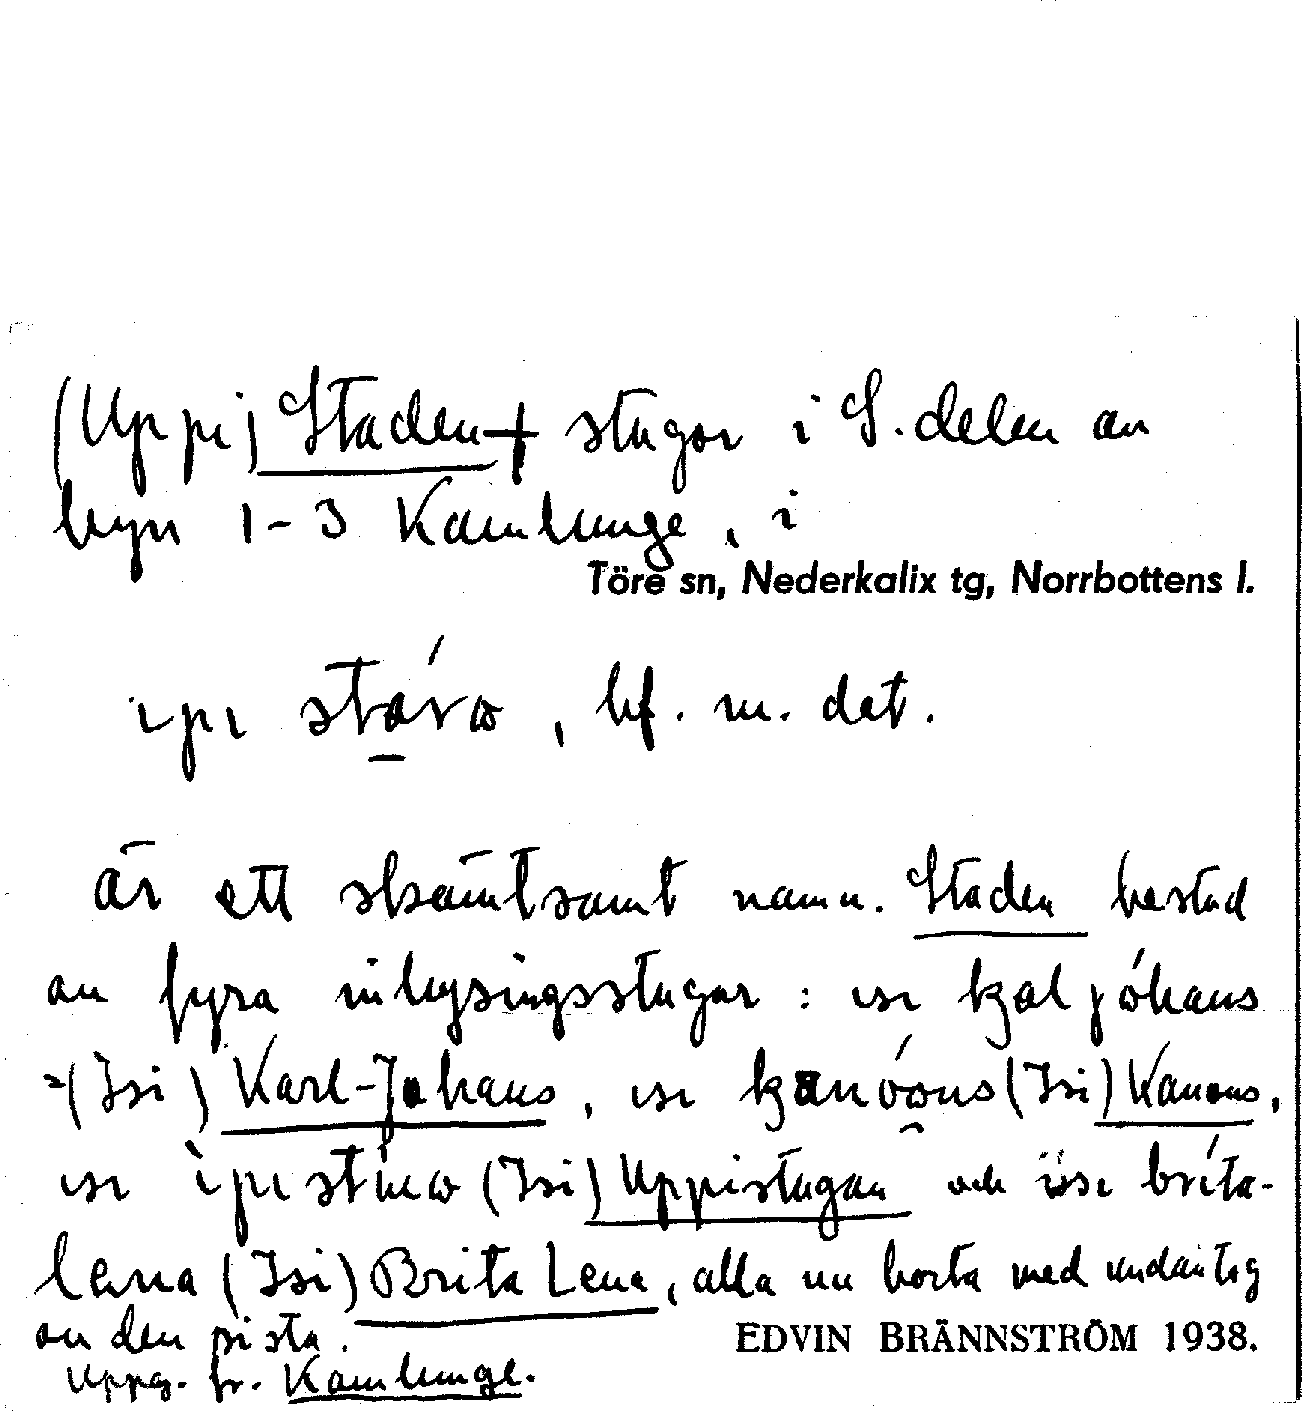 (Uppi) Staden + stugor i S. delen av
byn 1-3 Kamlunge, i
Töre sn, Nederkalix tg, Norrbottens l.
ipi , bf. m. dat.
är ett skämtsamt namn. Staden bestod
av fyra inhysingsstugor: isi
=(Isi) Karl-Johans, isi (Isi) Kanons,
isi (Isi) Uppistugan och issi brita-
lena (Isi) Brita Lena, alla nu borta med undantag
av den sista.
EDVIN BRÄNNSTRÖM 1938.
Uppg. fr. Kamlunge.